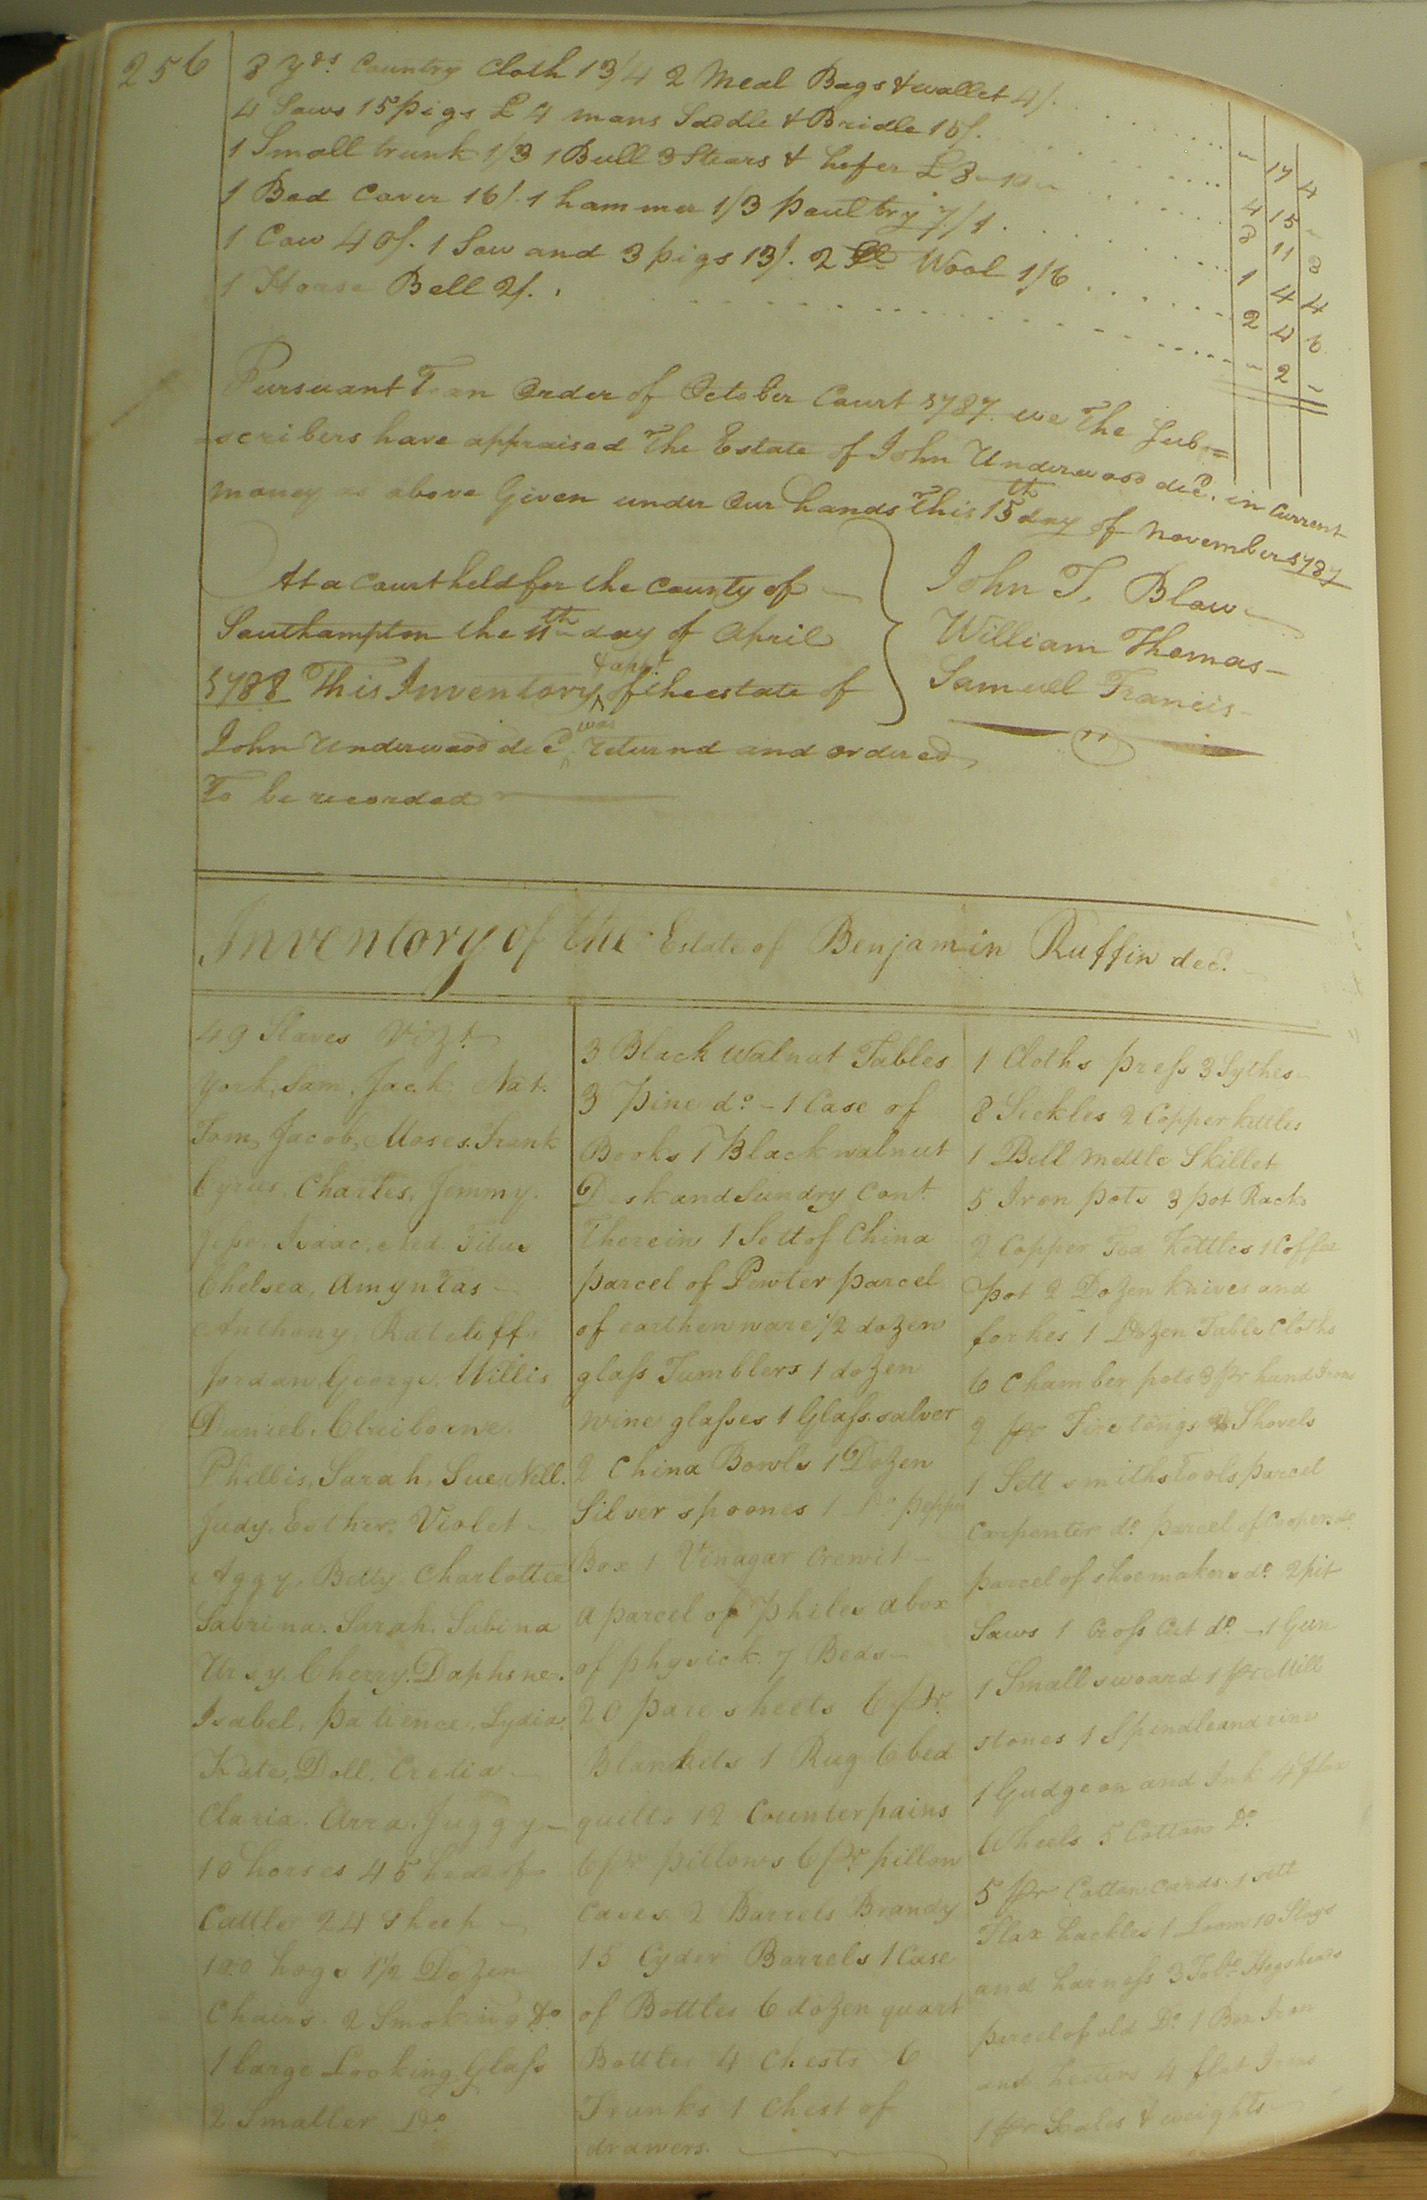 256
8 Yds Country Cloth 13/4 2 Meal Bags & wallet 4/. - 17 4
4 Sows 15 pigs £4 mans Saddle & Bridle 15/. 4 15 -
1 Small trunk 1/3 1 Bull 3 Stears & hefer £3-10- 3 11 3
1 Bed Cover 16/. 1 hammer 1/3 poultry 7/1. 1 4 4
1 Cow 40/. 1 Sow and 3 pigs 13/. 2 lb Wool 1/6 2 4 6
1 Horse Bell 2/. - 2 -
Pursuant To an Order of October Court 1787 we The Sub=
=scribers have appraised The Estate of John Underwood decd. in Current
money as above Given under Our hands This 15th day of November 1787
At a Court held for the County of
Southampton the 11th day of April
1788 This Inventory & appt of the estate of
John Underwood decd was returnd and ordered
To be recorded
John T. Blow
William Thomas
Samuel Francis
Inventory of the Estate of Benjamin Ruffin decd.
49 Slaves Vizt
York, Sam, Jack, Nat.
Tom, Jacob, Moses, Frank
Cyrus, Charles, Jemmy.
Jesse, Isaac, Ned, Titus
Chelsea, Amyntas
Anthony, Ratcliff
Jordan, George, Willis
Daniel, Claiborne.
Phillis, Sarah, Sue, Nell.
Judy, Esther, Violet
Aggy, Betty Charlotte
Sabrina. Sarah. Sabina
Ursy. Cherry. Daphne.
Isabel, Patience, Lydia
Kate, Doll. Cretia
Claria. Arra. Juggy
10 horses 45 head of
Cattle 24 Sheep
100 hogs 1½ Dozen
Chairs. 2 Smoking do
1 large Looking Glass
2 Smaller Do
3 Black Walnut Tables
3 Pine do - 1 Case of
Books 1 Black walnut
Desk and Sundry Cont.
Therein 1 Sett of China
parcel of Pewter parcel
of earthen ware ½ dozen
glass Tumblers 1 dozen
wine glasses 1 Glass salver
2 China Bowls 1 Dozen
Silver spoones 1 Do pepper
Box 1 Vinagar Crewit
a parcel of philes a box
of physick. 7 Beds
20 pare sheets 6 pr
Blankits 1 Rug 6 bed
quilts 12 Counterpains
6 pr pillows 6 pr pillow
Cases. 2 Barrels Brandy
15 Cyder Barrels 1 Case
of Bottles 6 dozen quart
Bottles 4 Chests 6
Trunks 1 Chest of
drawers.
1 Cloths press 3 Sythes
8 Sickles 2 Copper kettles
1 Bell Mettle Skillet
5 Iron pots 3 pot Racks
2 Copper Tea Kettles 1 Coffee
pot 2 Dozen Knives and
forkes 1 Dozen Table Cloths
6 Chamber pots 3 pr hand Irons
2 pr Fire tongs 2 Shovels
1 Sett smiths Tools parcel
Carpenter do parcel of Coopers do
parcel of shoemakers do 2 pit
Saws 1 Cross Cut do - 1 Gun
1 Small sword 1 pr Mill
stones 1 Spindle and rine
1 Gudgeon and Ink 4 flax
Wheels 5 Cotton Do
5 pr Cotton Cards. 1 sett
Flax hackles 1 Loom 10 Slays
and harness 3 Tobo Hogsheads
parcel of old Do 1 Box Iron
and heaters 4 flat Irons
1 pr Scales & weights